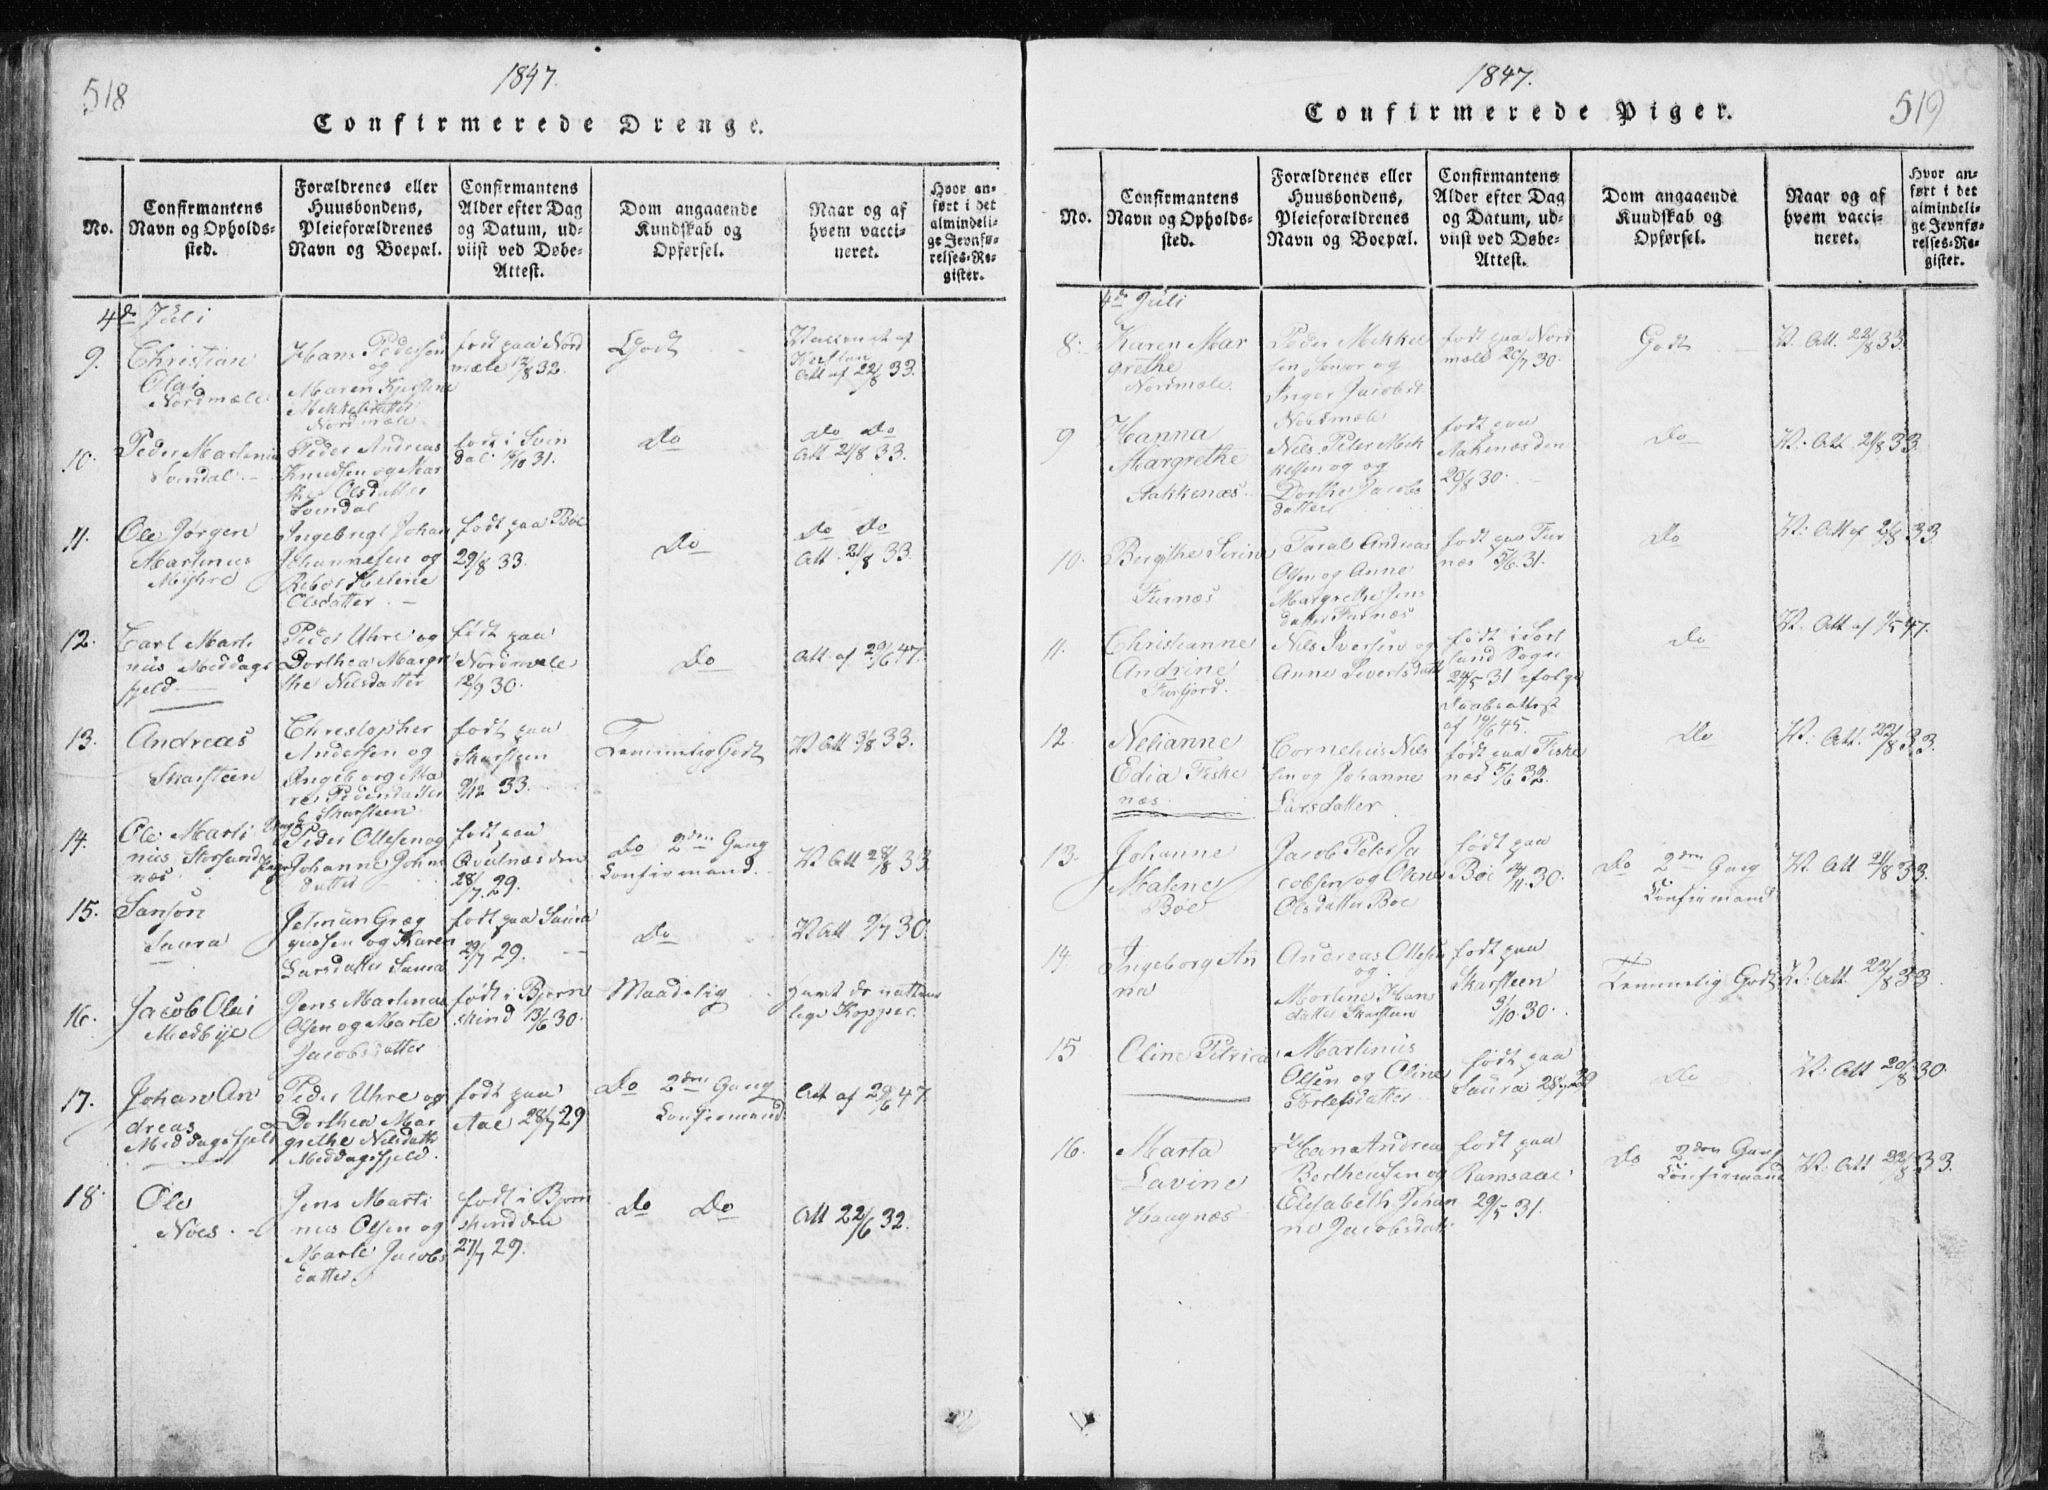 518
1847.
Confirmerede Drenge.
No.
Confirmantens
Navn og Opholds-
sted.
Forældrenes eller
Huusbondens,
Pleieforældrenes
Navn og Boepæl.
Confirmantens
Alder efter Dag
og Datum, ud-
viist ved Døbe-
Attest.
Dom angaaende
Kundskab og
Opførsel.
Naar og af
hvem vacci-
neret.
Hvor an-
ført i det
almindeli-
ge Jevnfø-
relses-Re-
gister.
4de Juli
9.
Christian
Olai
Nordmæle
Hans Pedersen
og
Maren Kjerstine
Mikkelsdatter
Nordmæle.
født paa Nord
mæle 12/8 32.
Godt
Att af 22/8 33.
10.
Peder Martinus
Svendal.
Peder Andreas
Knudsen og Mar
the Olsdatter
Svendal
født i Svin
dal 16/10 31.
Do
Do Do
Att 21/8 33.
11.
Ole Jørgen
Martinus
Myhre
Ingebrigt Johan
Johannesen og
Olsdatter.
født paa Böe
29/8 33.
Do
Do Do
Att. 21/8 33.
12.
Carl Marti
nius Middags
fjeld.
Peder Uhre og
Dorthea Margr
the Nilsdatter
født paa
Nordmæle
12/9 30.
Do
Att af 29/6 47.
13.
Andreas
Skarsteen
Christopher
Andersen og
Ingeborg Ma
ren Pedersdatter
Skarsteen
født paa
Skarsteen
9/12 33.
Temmelig Godt
V Att 31/8 33.
14.
Ole Marti
nius Storsand
næs
Peder Ollesen og
Johanne Johns
datter
født paa
Qvalnæs den
28/7 29.
Do 2den Gang
Confirmand.
V. Att 28/8 33
15.
Sanson
Saura
Jetmun Greg
gussen og Karen
Larsdatter Saura
født paa Saura
29/7 29.
Do
V Att 9/7 30
16.
Jacob Olai
Medbye
Jens Martinus
Olsen og Marte
Jacobsdatter
født i Bjørn
skind 13/6 30.
Maadelig
havt de natturlige Kopper.
17.
Johan An
dreas
Middagsfjeld
Peder Uhre og
Dorthea Mar
grethe Nilsdatter
Middagsfjeld.
født paa
Aae 28/7 29
Do 2den Gang
Confirmand.
Att af 29/6 47.
18.
Ole
Nöes.
Jens Marti
nus Olsen og
Marte Jacobs
datter
født i Bjørn
skind den
27/7 29.
do Do
Att 22/6 32.
519
1847.
Confirmerede Piger.
No.
Confirmantens
Navn og Opholds-
sted.
Forældrenes eller
Huusbondens,
Pleieforældrenes
Navn og Boepæl.
Confirmantens
Alder efter Dag
og Datum, ud-
viist ved Døbe-
Attest.
Dom angaaende
Kundskab og
Opførsel.
Naar og af
hvem vacci-
neret.
Hvor an-
ført i det
almindeli-
ge Jevnfø-
relses-Re-
gister.
4de Juli
8.
Karen Mar
grethe
Nordmæle.
Peder Mikkel
sen Senior og
Inger Jacobsd
Nordmæle
født paa Nord
mæle 20/7 30.
Godt
V. Att. 22/8 33.
9
Hanna
Margrethe
Aakkenæs.
Niels Peter Mick
kelsen og og
Dorthe Jacobs
datter
født paa
Aakenæs den
20/8 30.
Do
V: Att 21/8 33.
10.
Bergithe Serine
Furnæs
Taral Andreas
Olsen og Anne
Margrethe Jens
datter Furnæs
født paa Fur
næs 5/6 31.
Do
V: Att af 21/8 33
11.
Christianne
Andrine
Furfjord.
Niels Iversen og
Anne Sivertsdatt
født i Sort
land Sogn
24/5 31 efolge
Daabsattest
af 14/6 45.
Do
V. Att af 1/5 47.
12.
Nelianne
Edia Fiske
næs.
Cornelius Niel
sen og Johanne
Larsdatter
født paa Fiske
næs 5/6 32.
Do
V: Att. 22/8 33.
13.
Johanne
Malene
Böe
Jacob Peter Ja
cobsen og Oline
Olsdatter Böe
født paa
Böe 14/11 30.
Do 2den Gang
Confirmand
V. Att 21/8 33.
14.
Ingeborg An
na
Andreas Ollesen
og
Martine Hans
datter Skarsteen
født paa
Skarsteen
3/10 30.
Temmelig Godt
V: Att 22/8 33.
15
Oline Petricia
Martinus
Olsen og Oline
Torlefsdatter
født paa
Saura 28/7 29
Do
V: Att 20/8 30.
16.
Marta
Lavine
Haugnæs.
Hans Andrea
Bertheussen og
Elisabeth Johan
ne Jacobsdatt
født paa
Ramsaae
29/5 31.
Do 2den Gang
Confirmand
V: Att 22/8 33.